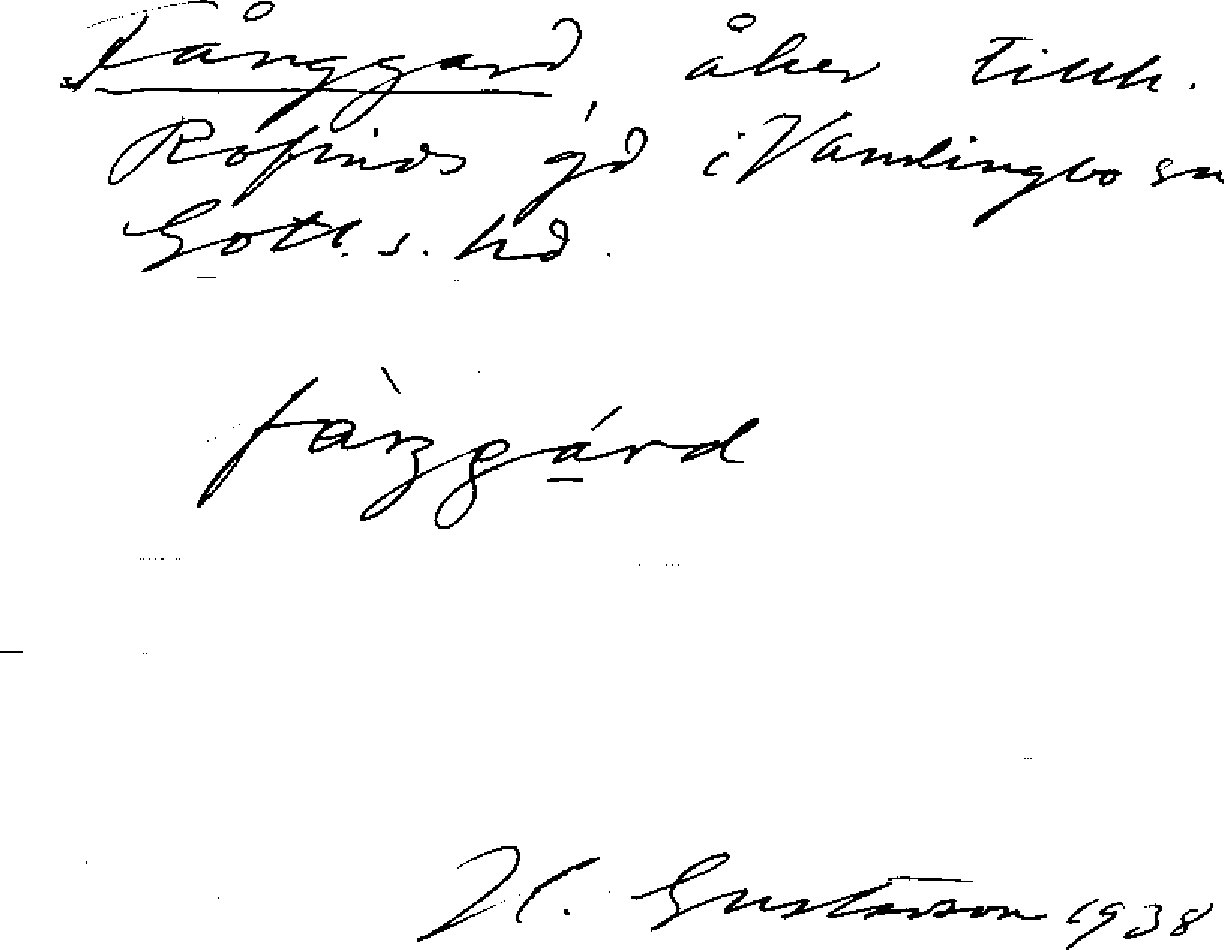 Fånggard, åker tillh.
Rofinds gd i Vamlingbo sn
Gotl. s. hd.
fàŋgá̲rd
H. Gustavson 1938